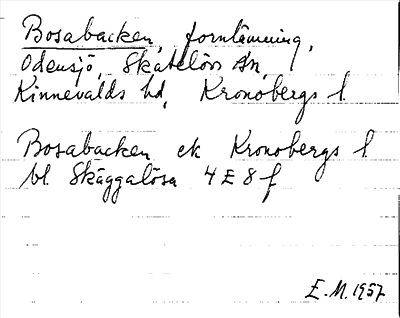 Bosabacken, fornlämning,
Odensjö, Skatelövs sn,
Kinnevalds hd, Kronobergs l.
Bosabacken ek Kronobergs l.
bl. Skäggalösa 4E8f
E.M. 1957